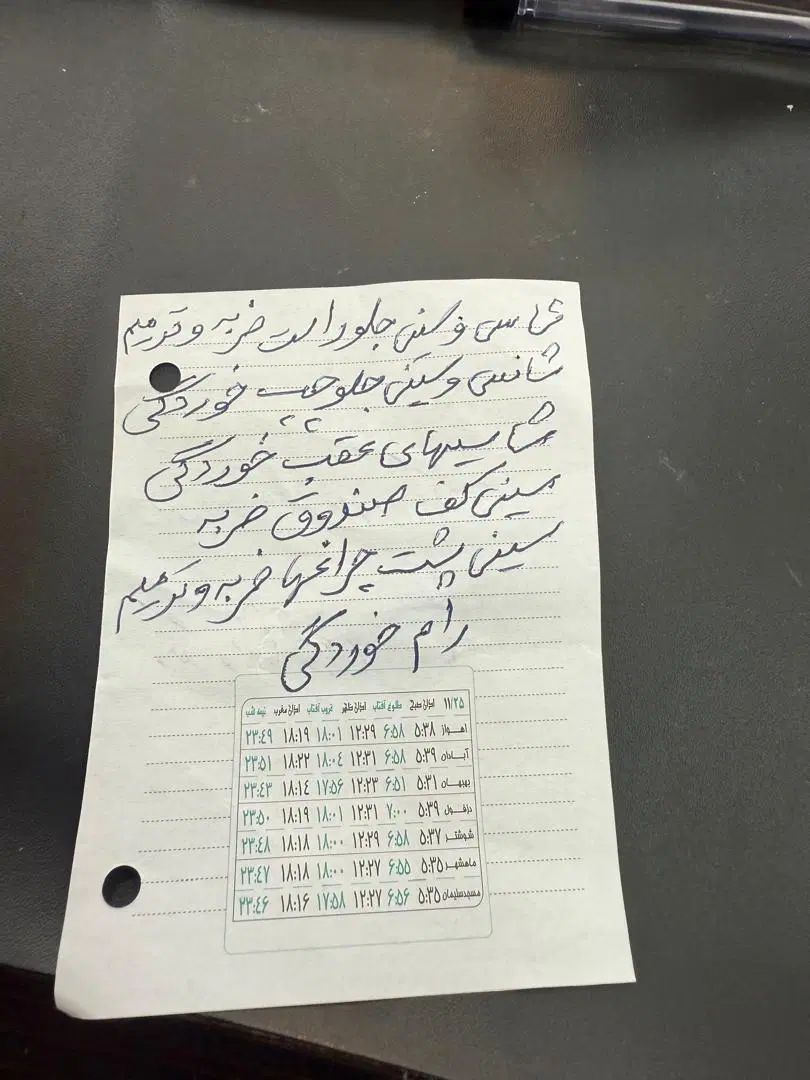 شاسی و سینی جلو راست ضربه و ترمیم
شاسی و سینی جلو چپ خوردگی
شاسیهای عقب خوردگی
سینی کف صندوق ضربه
سینی پشت چراغها ضربه و ترمیم
رام خوردگی
۱۱/۲۵ اذان صبح طلوع آفتاب اذان ظهر غروب آفتاب اذان مغرب نیمه شب
اهواز ۵:۳۸ ۶:۵۸ ۱۲:۲۹ ۱۸:۰۱ ۱۸:۱۹ ۲۳:۴۹
آبادان ۵:۳۹ ۶:۵۸ ۱۲:۳۱ ۱۸:۰۴ ۱۸:۲۲ ۲۳:۵۱
بهبهان ۵:۳۱ ۶:۵۱ ۱۲:۲۳ ۱۷:۵۶ ۱۸:۱۴ ۲۳:۴۳
دزفول ۵:۳۹ ۷:۰۰ ۱۲:۳۱ ۱۸:۰۱ ۱۸:۱۹ ۲۳:۵۰
شوشتر ۵:۳۷ ۶:۵۸ ۱۲:۲۹ ۱۸:۰۰ ۱۸:۱۸ ۲۳:۴۸
ماهشهر ۵:۳۵ ۶:۵۵ ۱۲:۲۷ ۱۸:۰۰ ۱۸:۱۸ ۲۳:۴۷
مسجدسلیمان ۵:۳۵ ۶:۵۶ ۱۲:۲۷ ۱۷:۵۸ ۱۸:۱۶ ۲۳:۴۶